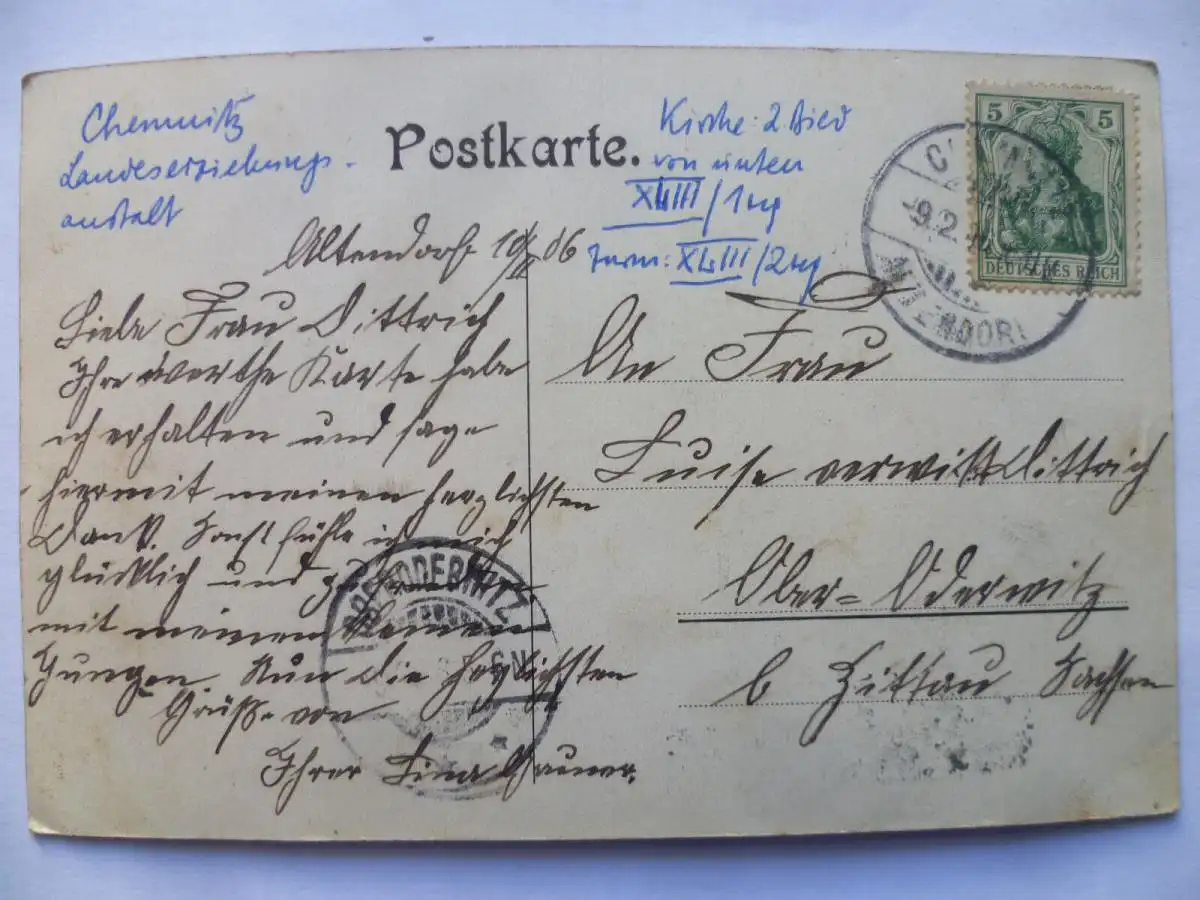 Chemnitz
Landeserziehungs-
anstalt
Postkarte.
Kirche: 2. Bild
von unten
XLIII/1
Turm: XLIII/2
5 5
DEUTSCHES REICH
9.2.
ALTENDORF
Altendorf 10/II 06
Liebe Frau Dittrich
Ihre werthe Karte habe
ich erhalten und sage
hiermit meinen herzlichsten
Dank. Sonst fühle ich mich
glücklich und zufrieden
mit meinem kleinen
Jungen. Nun die herzlichsten
Grüße von
Ihrer Lina
OBERODERWITZ
An Frau
Luise verwitt Dittrich
Ober-Oderwitz
b Zittau Sachsen